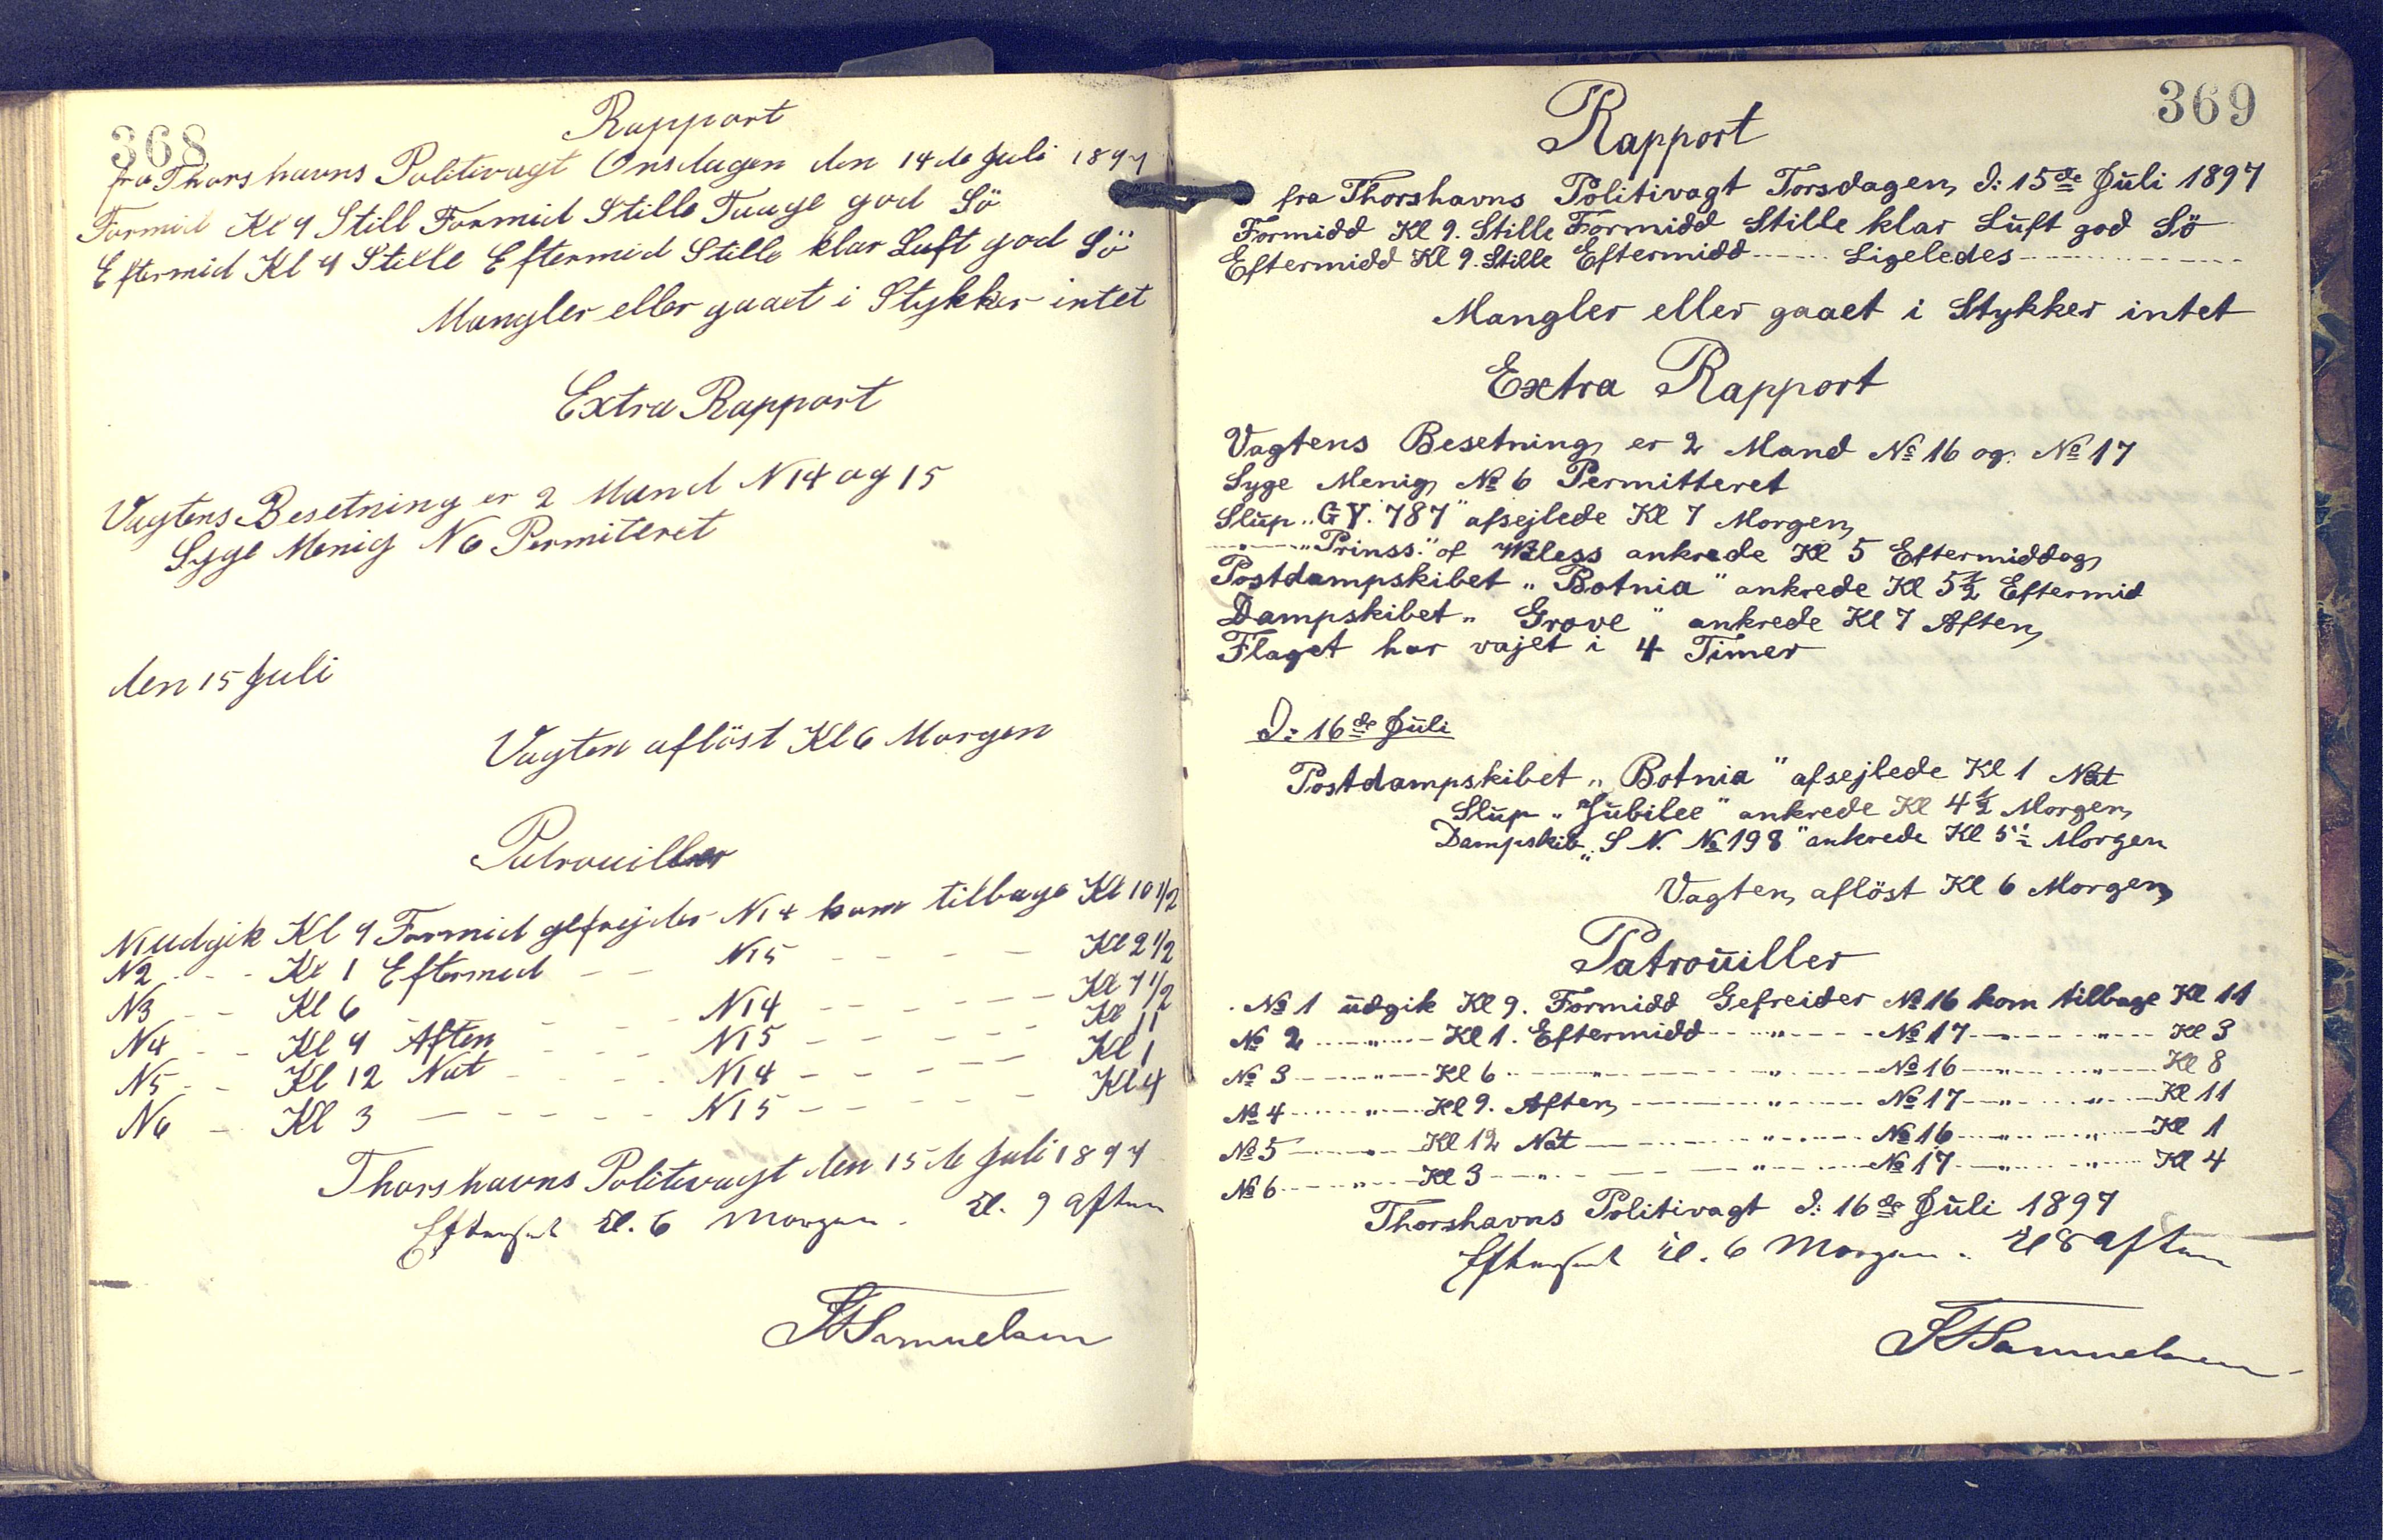 368
Rapport
fra Thorshavns Politivagt Onsdagen den 14de Juli 1897
Formid Kl 9 Still Formid Stille Taage god Sö
Eftermid Kl 9 Stille Eftermid Stille klar Luft god Sö
Mangler eller gaaet i Stykker intet
Extra Rapport
Vagtens Besetning er 2 Mand N14 og 15
Syge Menig N6 Permiteret
den 15 Juli
Vagten aflöst Kl 6 Morgen
Patrouiller
N1 udgik Kl 9 Formid gefrejder N14 kom tilbage Kl 10 1/2
N2 - - Kl 1 Eftermid - - N15 - - - - Kl 2 1/2
N3 - - Kl 6 - - - N14 - - - - Kl 7 1/2
N4 - - Kl 9 Aften - - - N15 - - - - Kl 11
N5 - - Kl 12 Nat - - - - N14 - - - - Kl 1
N6 - Kl 3 - - - - - N15 - - - - Kl 4
Thorshavns Politivagt den 15de Juli 1897
Efterseet Kl. 6 Morgen. Kl. 9 Aften
Samuelsen
369
Rapport
fra Thorshavns Politivagt Torsdagen, d: 15de Juli 1897
Formidd Kl 9. Stille Formidd Stille klar Luft god Sö
Eftermidd Kl 9. Stille Eftermidd ---- Ligeledes ----
Mangler eller gaaet i Stykker intet
Extra Rapport
Vagtens Besetning er 2 Mand No 16 og No 17
Syge Menig No 6 Permitteret
Slup „GY. 787" afsejlede Kl 7 Morgen
---- „Prinss." of Waless ankrede Kl 5 Eftermiddag
Postdampskibet „Botnia" ankrede Kl 5 1/2 Eftermid
Dampskibet „Grove" ankrede Kl 7 Aften
Flaget har vajet i 4 Timer
D: 16de Juli
Postdampskibet „Botnia" afsejlede Kl 1 Nat
Slup „Jubilee" ankrede Kl 4 1/2 Morgen
Dampskib „S N. No 198" ankrede Kl 5 1/2 Morgen
Vagten aflöst Kl 6 Morgen
Patrouiller
No 1 udgik Kl 9. Formidd Gefreider No 16 kom tilbage Kl 11
No 2 ---- „ ---- Kl 1. Eftermidd ---- „ ---- No 17 ---- „ ---- Kl 3
No 3 ---- „ ---- Kl 6 ---- „ ---- „ ---- No 16 ---- „ ---- „ ---- Kl 8
No 4 ---- „ ---- Kl 9. Aften ---- „ ---- No 17 ---- „ ---- „ ---- Kl 11
No 5 ---- „ ---- Kl 12 Nat ---- „ ---- No 16 ---- „ ---- „ ---- Kl 1
No 6 ---- „ ---- Kl 3 ---- „ ---- „ ---- No 17 ---- „ ---- „ ---- Kl 4
Thorshavns Politivagt d: 16de Juli 1897
Efterseet Kl. 6 Morgen. Kl 8 Aften
Samuelsen